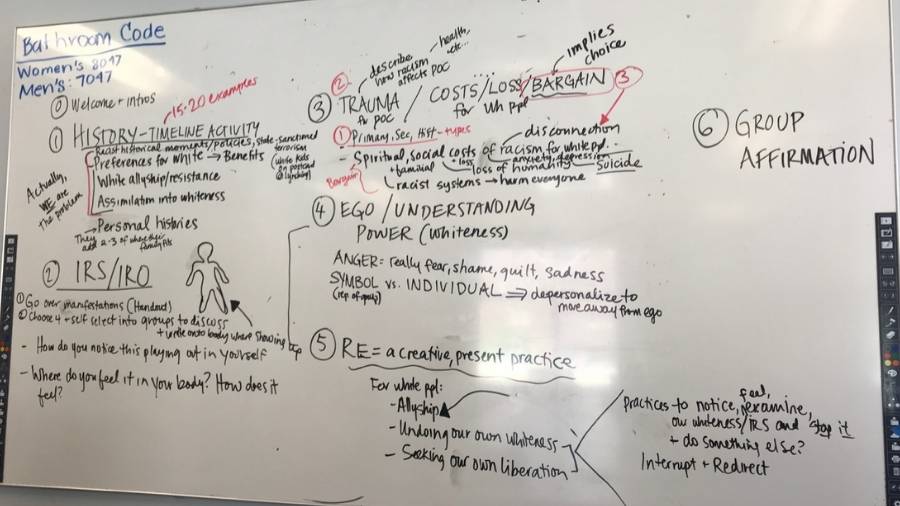 Bathroom Code
Women's 8047
Men's: 7047
⓪ Welcome + intros
15-20 examples
① HISTORY-TIMELINE ACTIVITY
Racist historical moments/policies, state-sanctioned terrorism
(white kids on postcard @ lynching)
Preferences for white → Benefits
White allyship/resistance
Assimilation into whiteness
Actually, WE are the problem
→ Personal histories
They add 2-3 of where their family fits
② IRS/IRO
① Go over manifestations (Handout)
② Choose 4 + self select into groups to discuss
+ write onto body where showing up
- How do you notice this playing out in yourself
- Where do you feel it in your body? How does it feel?
② describe how racism affects POC
health, etc...
implies choice
③ TRAUMA / COSTS/LOSS/BARGAIN ③
for POC
for wh ppl
① Primary, Sec, Hist - types
disconnection
- Spiritual, social costs of racism, for white ppl...
+ familial
+ loss
anxiety, depression
loss of humanity
suicide
Bargain
racist systems → harm everyone
④ EGO/UNDERSTANDING
POWER (whiteness)
ANGER = really fear, shame, guilt, sadness
SYMBOL vs. INDIVIDUAL ⇒ depersonalize to
move away from ego
⑤ RE = a creative, present practice
For white ppl:
- Allyship
- Undoing our own whiteness
- Seeking our own liberation
feel,
practices to notice, examine,
our whiteness/IRS and stop it
+ do something else?
Interrupt + Redirect
⑥ GROUP
AFFIRMATION